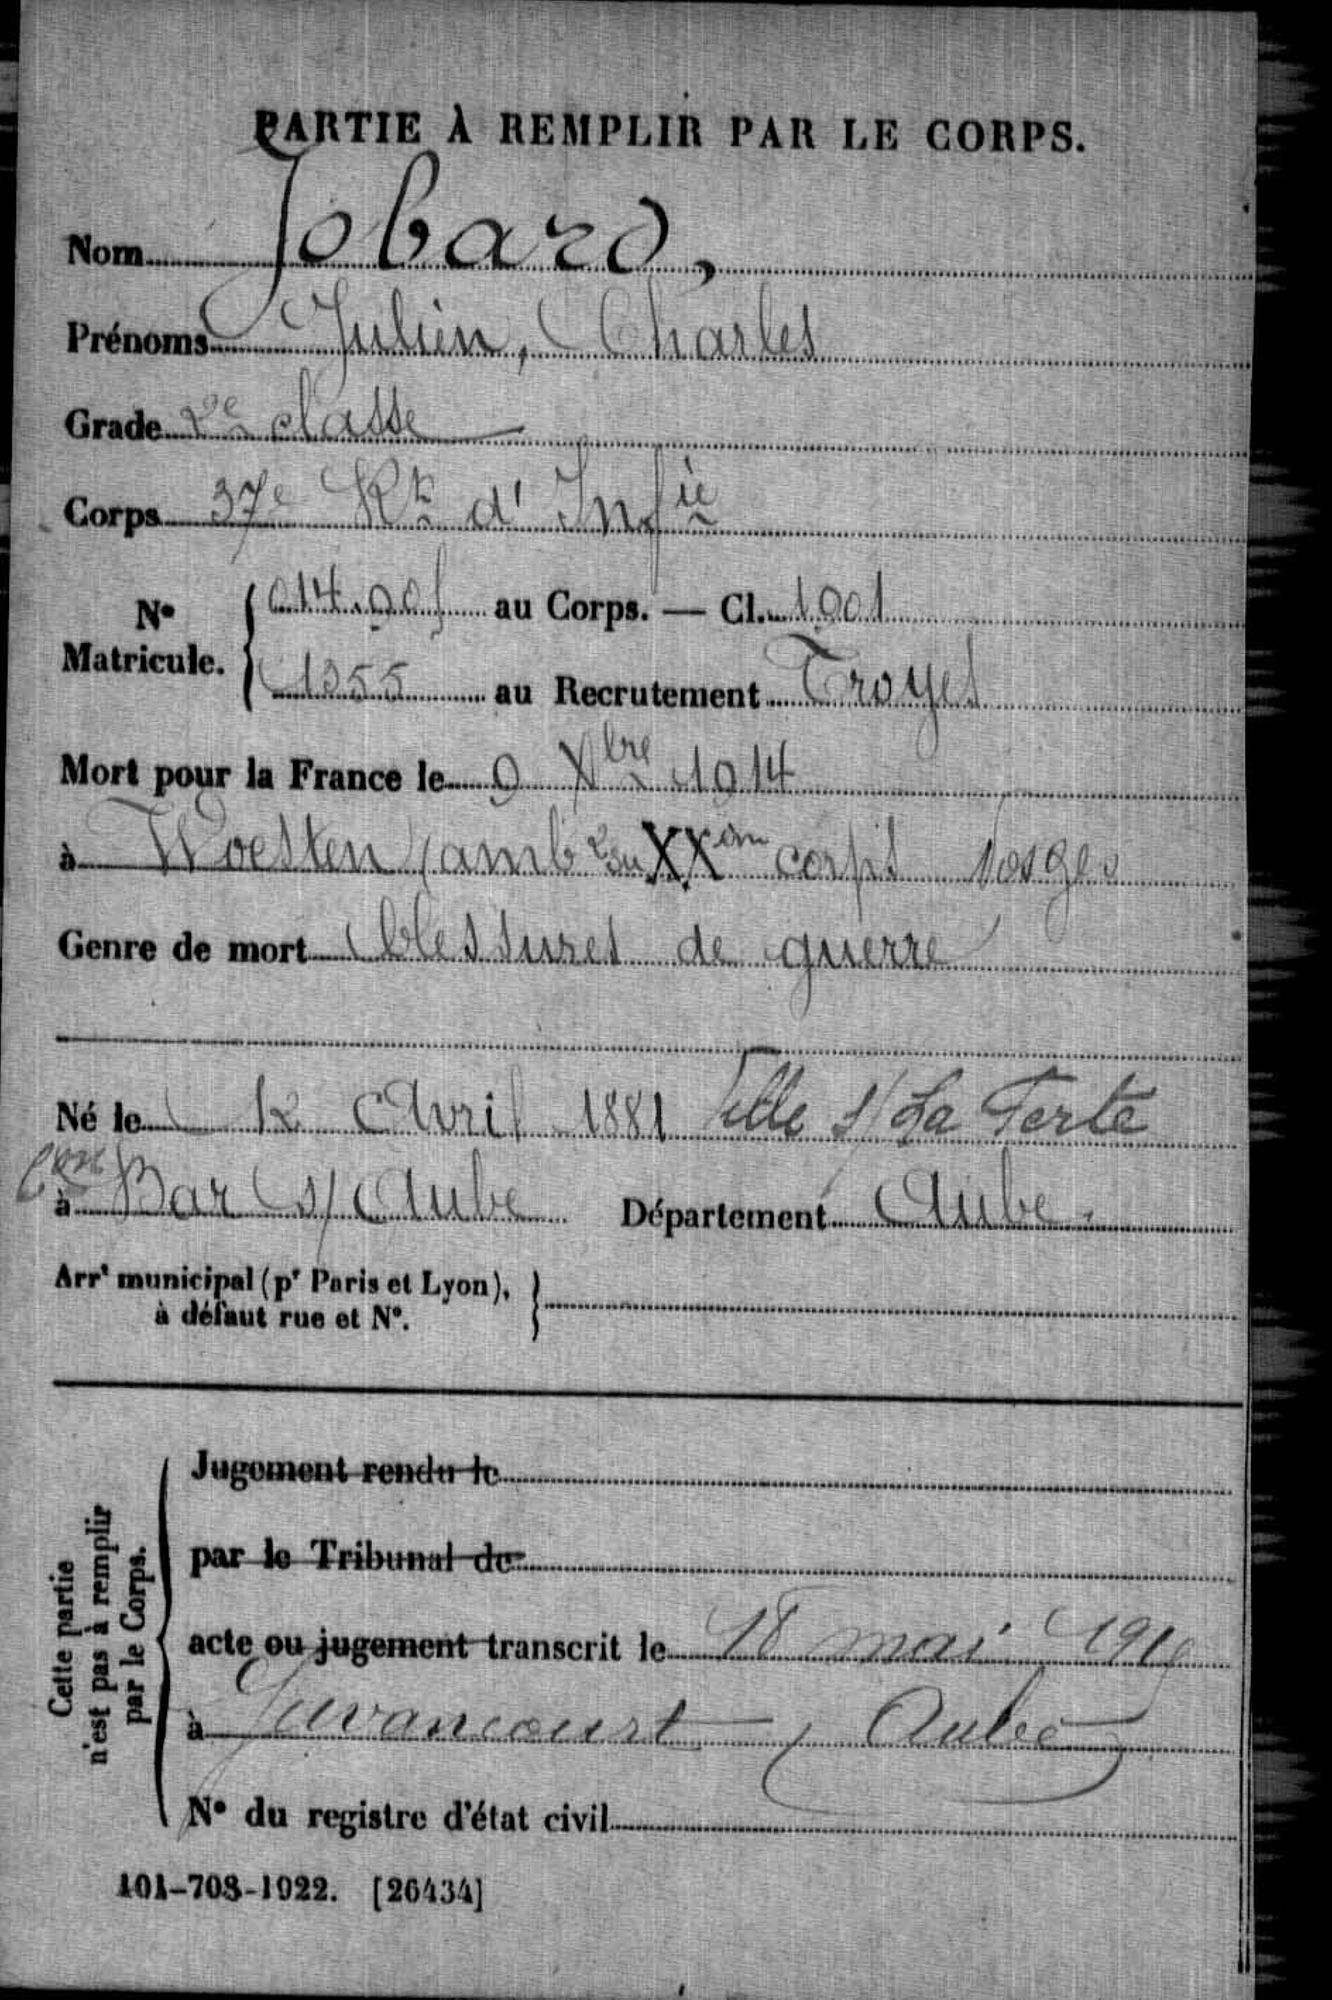 PARTIE À REMPLIR PAR LE CORPS.
Nom Jobard,
Prénoms Julien, Charles
Grade 2e classe
Corps 37e Rt d'Infie
No Matricule. { 014.005 au Corps. — Cl. 1901
1355 au Recrutement Troyes
Mort pour la France le 9 Xbre 1914
à Woesten (amb 2 du XXème corps Vosges
Genre de mort blessures de guerre
Né le 12 Avril 1881 Ville s/ La Ferte
Con
à Bar s/ Aube Département Aube.
Arrt municipal (pr Paris et Lyon),
à défaut rue et No.
Cette partie
n'est pas à remplir
par le Corps.
Jugement rendu le
par le Tribunal de
acte ou jugement transcrit le 18 mai 1915
à Juvancourt, Aube
No du registre d'état civil
101-708-1922. [26434]